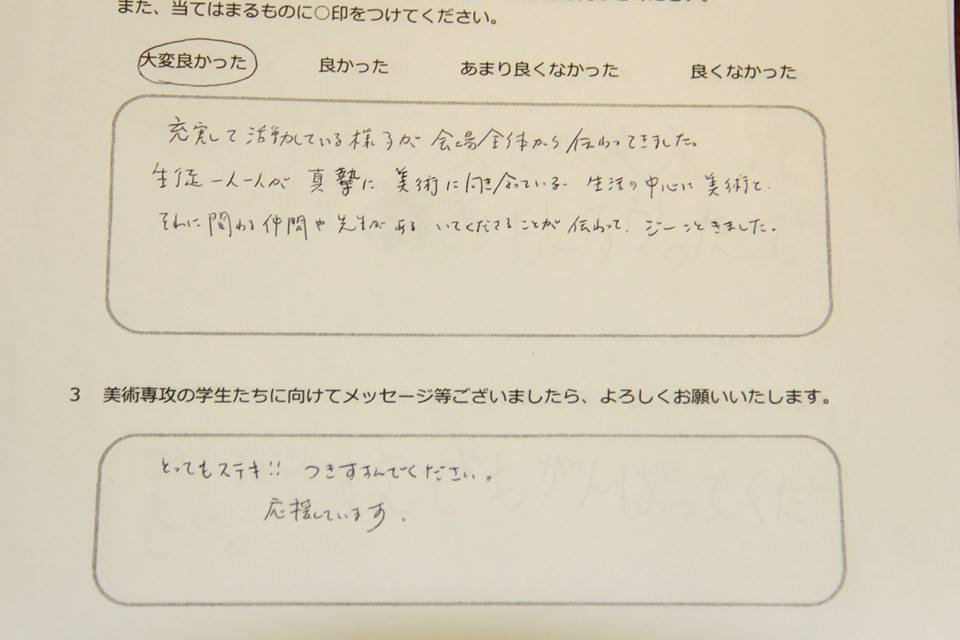 また、当てはまるものに○印をつけてください。
大変良かった 良かった あまり良くなかった 良くなかった
充実して活動している様子が会場全体から伝わってきました。
生徒一人一人が真摯に美術に向き合っている。生活の中心に美術と、
それに関わる仲間や先生がある、いてくださることが伝わって、ジーンときました。
3 美術専攻の学生たちに向けてメッセージ等ございましたら、よろしくお願いいたします。
とってもステキ!! つきすすんでください。
応援しています.